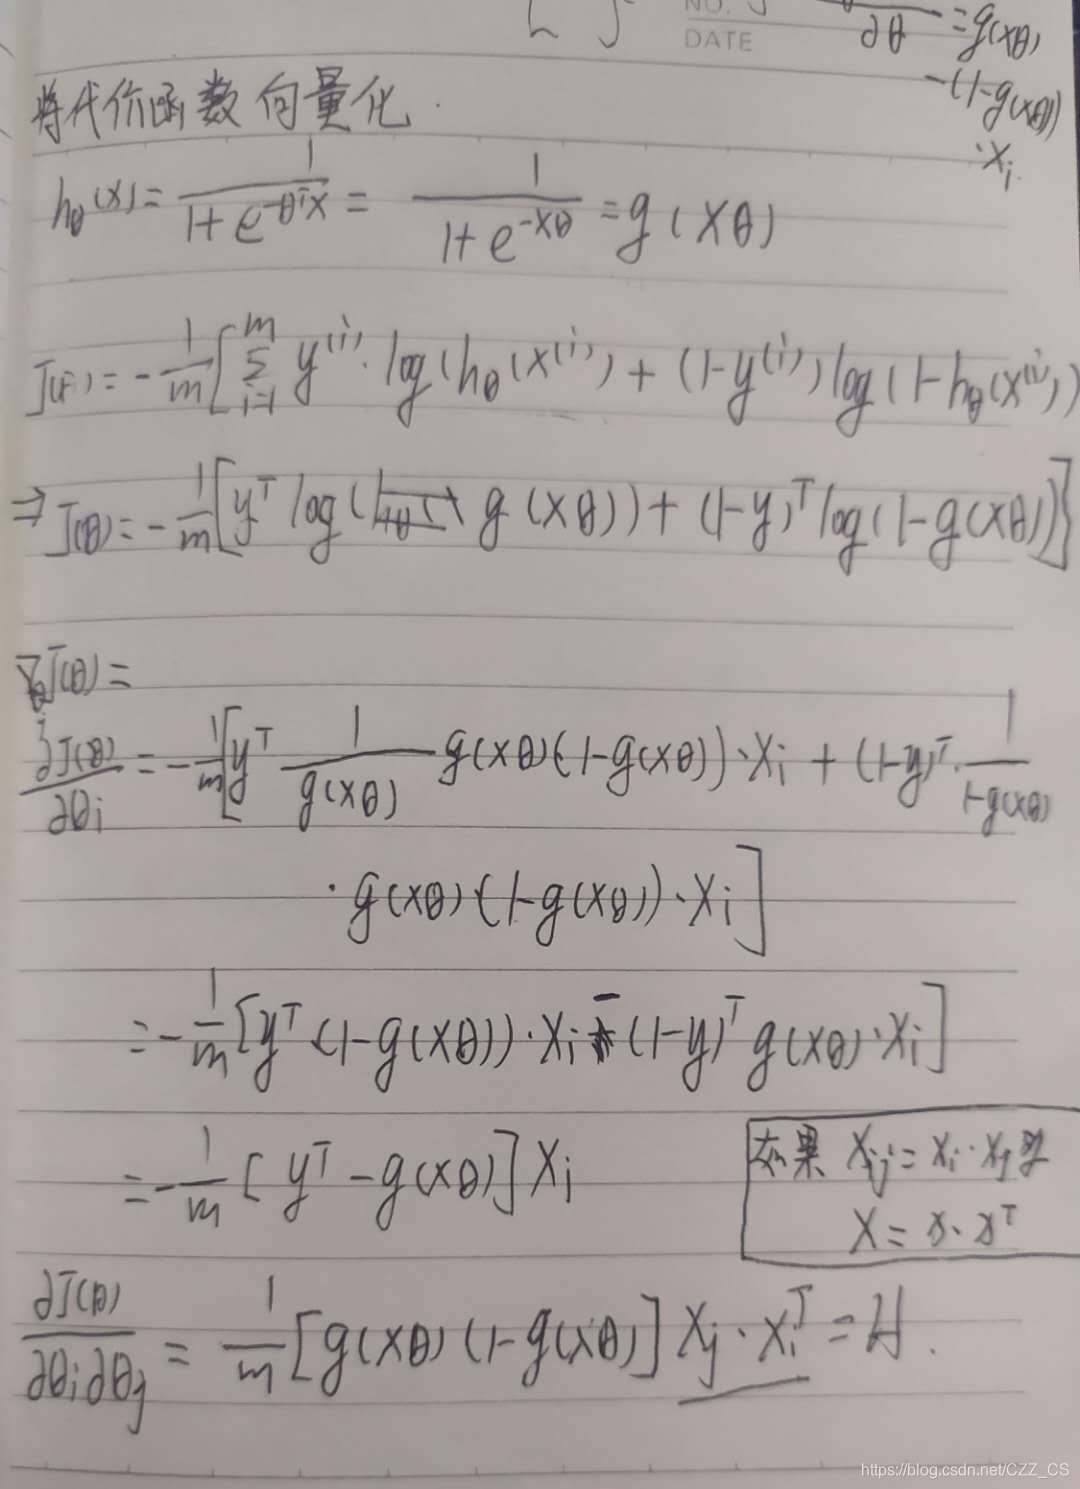 NO.
DATE
∂θ = g(xθ)
-(1-g(xθ))
·xi
将代价函数向量化.
hθ(x) = 1/(1+e^(-θ^T x)) = 1/(1+e^(-xθ)) = g(xθ)
J(θ) = -1/m [ Σ_{i=1}^{m} y^(i)·log(hθ(x^(i))) + (1-y^(i)) log(1-hθ(x^(i)))
⇒ J(θ) = -1/m [ y^T log( g(xθ)) + (1-y)^T log(1-g(xθ)) ]
∇θJ(θ) =
∂J(θ)/∂θi = -1/m [ y^T 1/g(xθ) g(xθ)(1-g(xθ))·xi + (1-y)^T · 1/(1-g(xθ))
· g(xθ)(1-g(xθ))·xi ]
= -1/m [ y^T (1-g(xθ))·xi - (1-y)^T g(xθ)·xi ]
= -1/m [ y^T - g(xθ) ] xi
如果 Xij = xi·xj
X = x·x^T
∂J(θ)/∂θi∂θj = 1/m [ g(xθ)(1-g(xθ) ] xj·xi^T = H.
https://blog.csdn.net/CZZ_CS